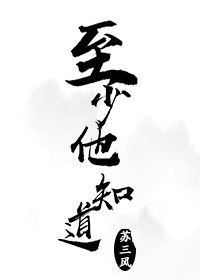 至少他知道
苏三风